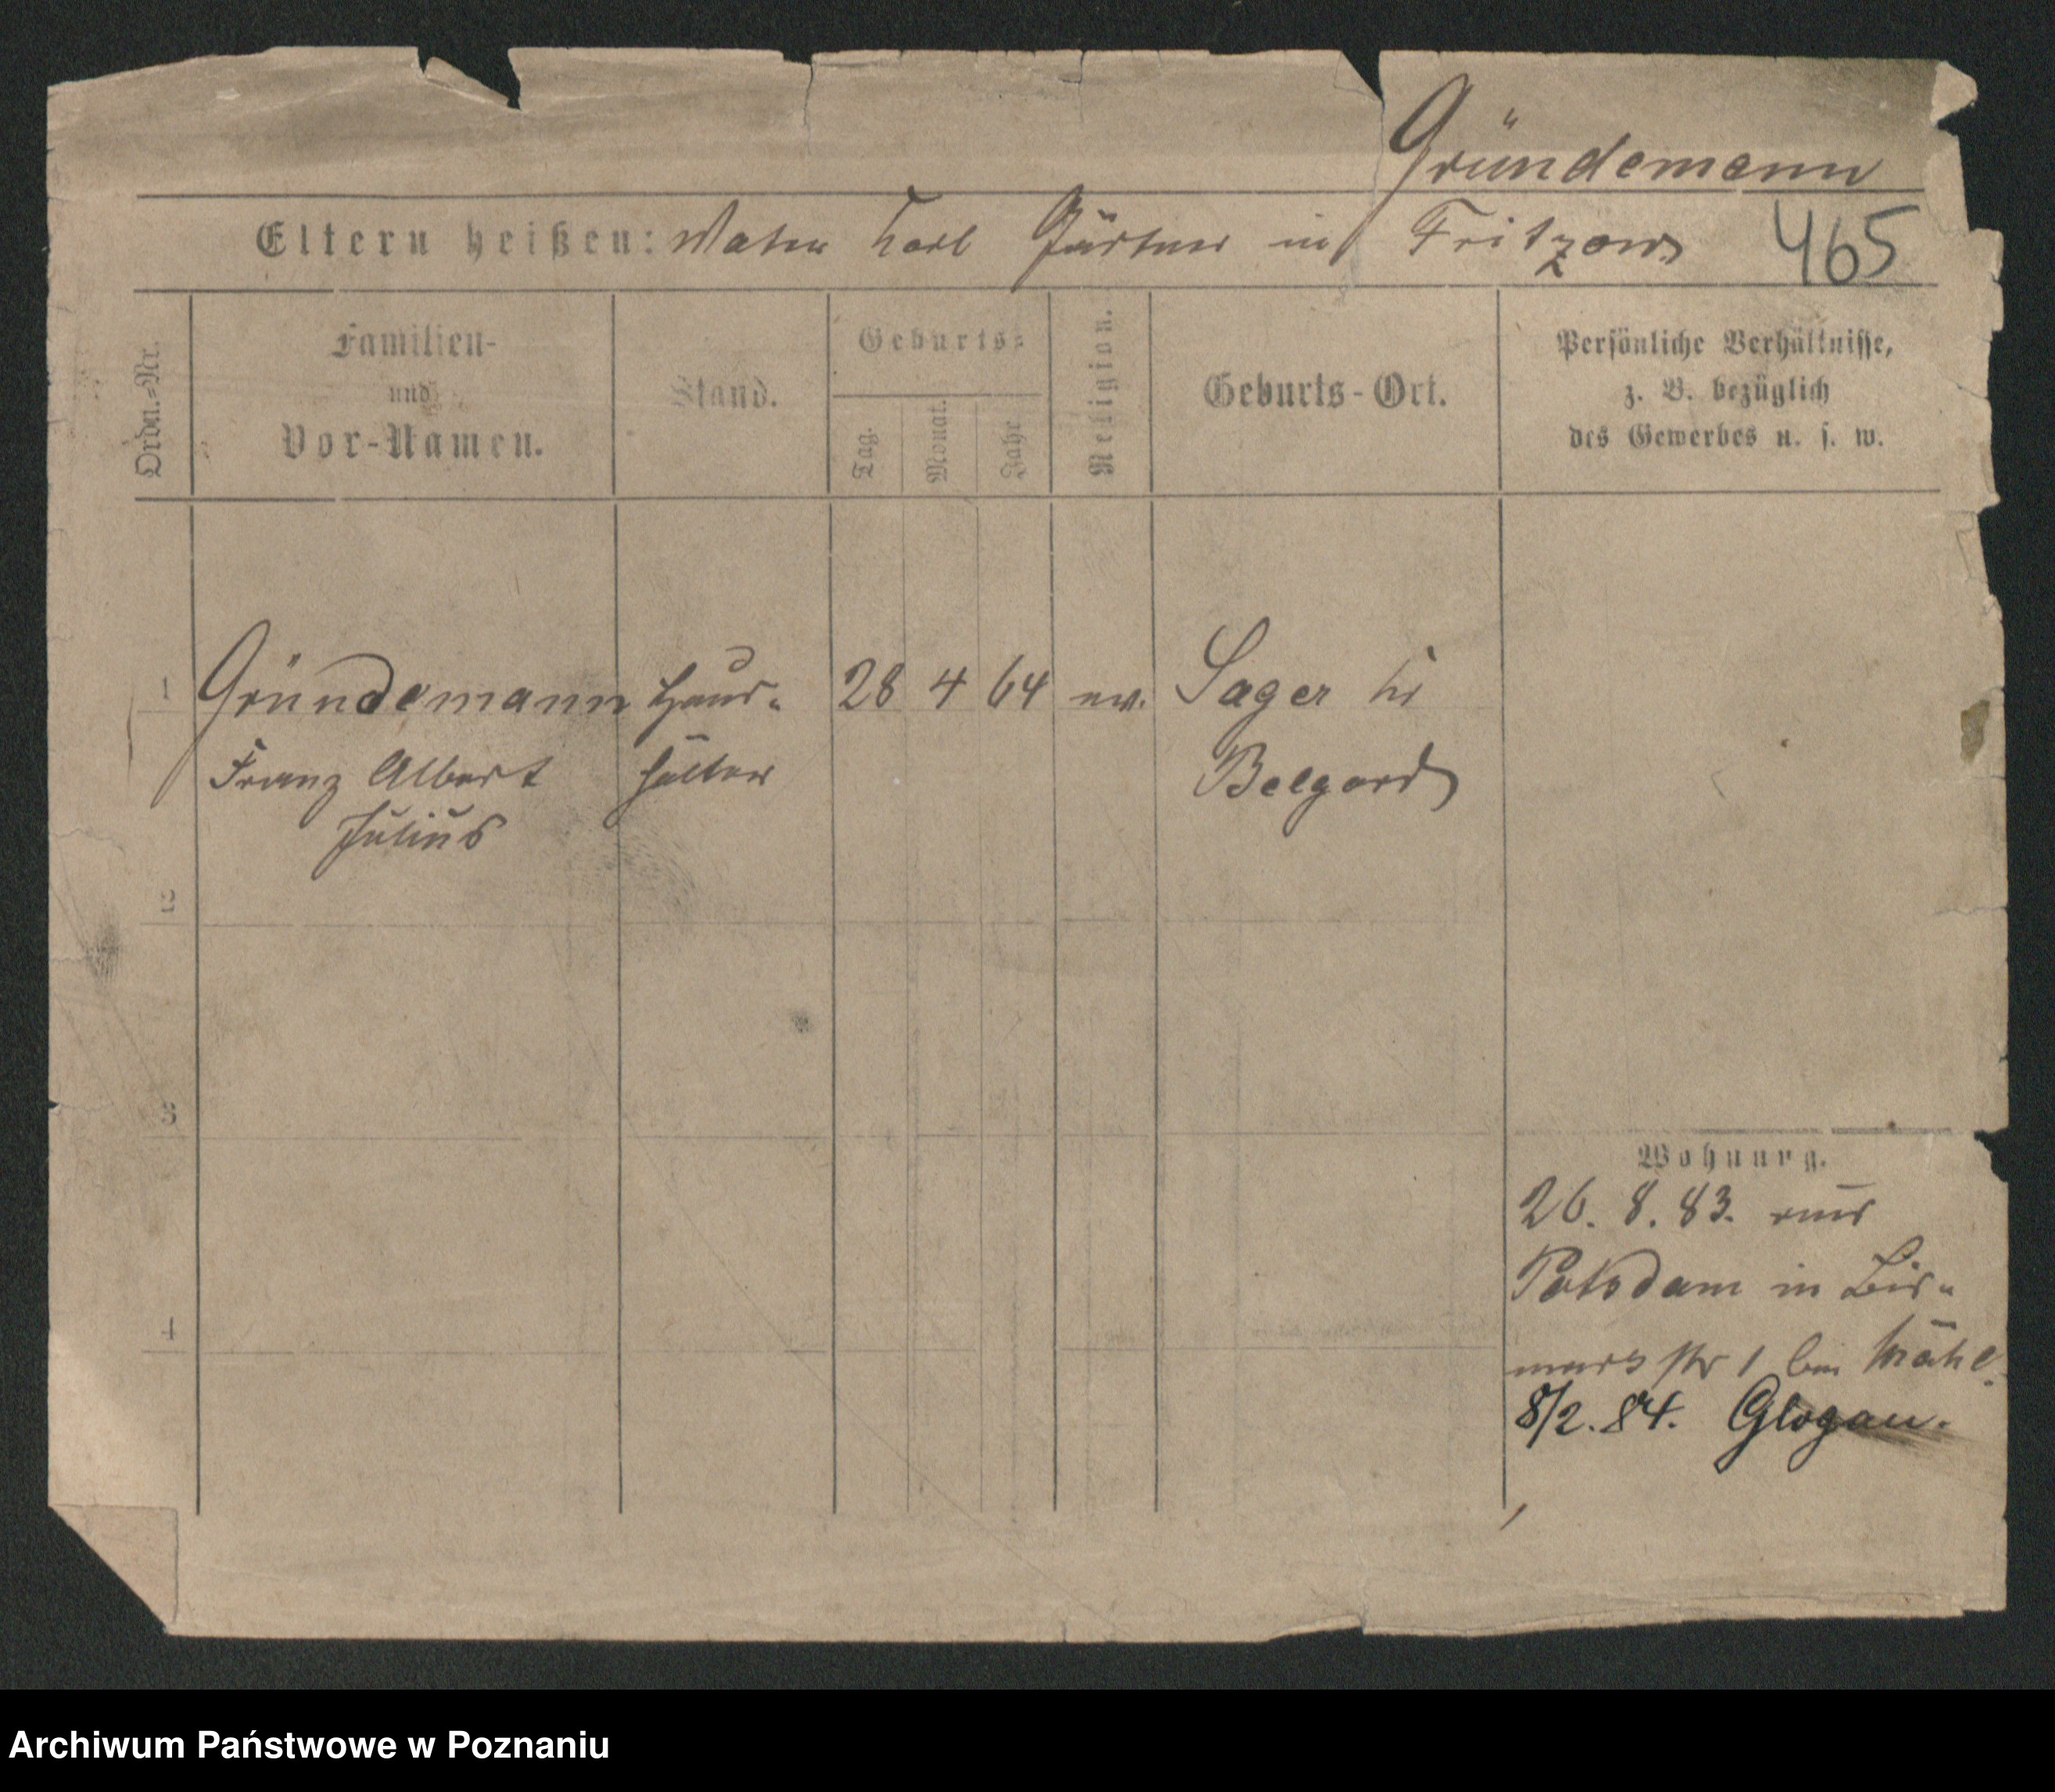 Gründemann
Eltern heißen: Vater Karl Gärtner in Fritzow
465
Ordn.-Nr.
Familien-
und
Vor-Namen.
Stand.
Geburts-
Tag.
Monat.
Jahr
Religion.
Geburts-Ort.
Persönliche Verhältnisse,
z. B. bezüglich
des Gewerbes u. s. w.
1 Gründemann Haus- 28 4 64 ev. Sager Kr
Franz Albert hälter Belgard
Julius
2
3
4
Wohnung.
26. 8. 83. aus
Potsdam in Bis-
marckstr 1 bei
8/2. 84. Glogau.
Archiwum Państwowe w Poznaniu